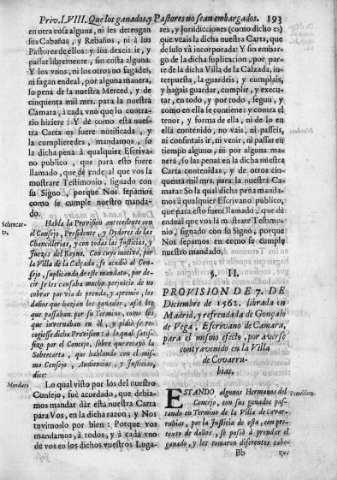 Priv. LVIII. Que los ganados, y Pastores no sean embargados. 193
en otra cosa alguna, ni les derengan
sus Cabañas, y Rebaños, ni à los
Pastores de ellos: y los dexeis ir, y
passar libremente, sin costa alguna.
Y los vnos, ni los otros no fagades,
ni fagan endeal, por alguna manera,
so pena de la nuestra Merced, y de
cinquenta mil mrs. para la nuestra
Camara, à cada vno que lo contra-
rio hiziere: Y de como esta nues-
tra Carta os fuere notificada, y
la cumplieredes, mandamos, so
la dicha pena à qualquier Escriva-
no publico, que para esto fuere
llamado, que dè ende, al que vos la
mostrare Testimonio, signado con
su Signo, porque Nos sepamos
como se cumple nuestro manda-
do.
Sobrecar-
ta.
Habla la Provision antecedente con
el Consejo, Presidente, y Oydores de las
Chancillerias, y con todas las Justicias, y
Juezes del Reyno. Con cuyo motivo, por
la Villa de la Calçada, se acudiò al Con-
sejo, suplicando de este mandato, por de-
cir se les causaba mucho perjuicio de no
cobrar por via de prenda, y apremio, los
daños que hazian los ganados, assi los
que passaban por su Termino, como los
que invernaban en èl, y pidiò se re-
cogiesse dicha Provision: de lo qual satis-
fizo por el Concejo, sobre que recayò la
Sobrecarta, que hablando con el mis-
mo Consejo, Audiencias, y Justicias,
dize:
Mandato.
Lo qual visto por los del nuestro
Consejo, fuè acordado, que debia-
mos mandar dàr esta nuestra Carta
para Vos, en la dicha razon; y Nos
tuvimoslo por bien: Porque vos
mandamos, à todos, y à cada vno
de vos en los dichos vuestros Luga-
res, y Jurisdiciones (como dicho es)
que veais la dicha nuestra Carta, que
de suso và incorporada: Y sin embar-
go de la dicha suplicacion, por par-
te de la dicha Villa de la Calzada, in-
terpuesta, la guardeis, y cumplais,
y hagais guardar, cumplir, y execu-
tar, en todo, y por todo, segun, y
como en ella se contiene: y contra el
tenor, y forma de ella, ni de lo en
ella contenido, no vais, ni passeis,
ni consintais ir, ni venir, ni passar en
tiempo alguno, ni por alguna mane-
ra, so las penas en la dicha nuestra
Carta contenidas, y de otros cin-
quenta mil mrs. para la nuestra Ca-
mara: So la qual dicha pena manda-
mos à qualquier Escrivano publico,
que para esto fuere llamado, que dè
endeal que vos la mostrare Testimo-
nio, signado con su Signo, porque
Nos sepamos en como se cumple
nuestro mandado.
§. II.
PROVISION DE 7. DE
Diciembre de 1562. librada en
Madrid, y refrendada de Gonçalo
de Vega, Escrivano de Camara,
para el mismo efecto, por averse
contravenido en la Villa
de Covarru-
bias.
ESTANDO algunos Hermanos del
Concejo, con sus ganados pastan-
do en Termino de la Villa de Covar-
rubias, por la Justicia de ella, con pre-
texto de daños, se passò à prendar el
ganado, y les tomaron diferentes cabe-
Bb